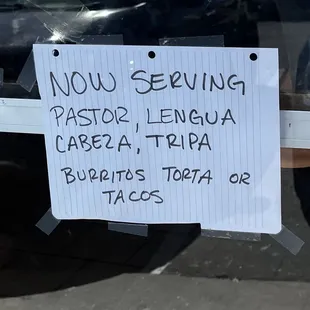 NOW SERVING
PASTOR, LENGUA
CABEZA, TRIPA
BURRITOS TORTA OR
TACOS